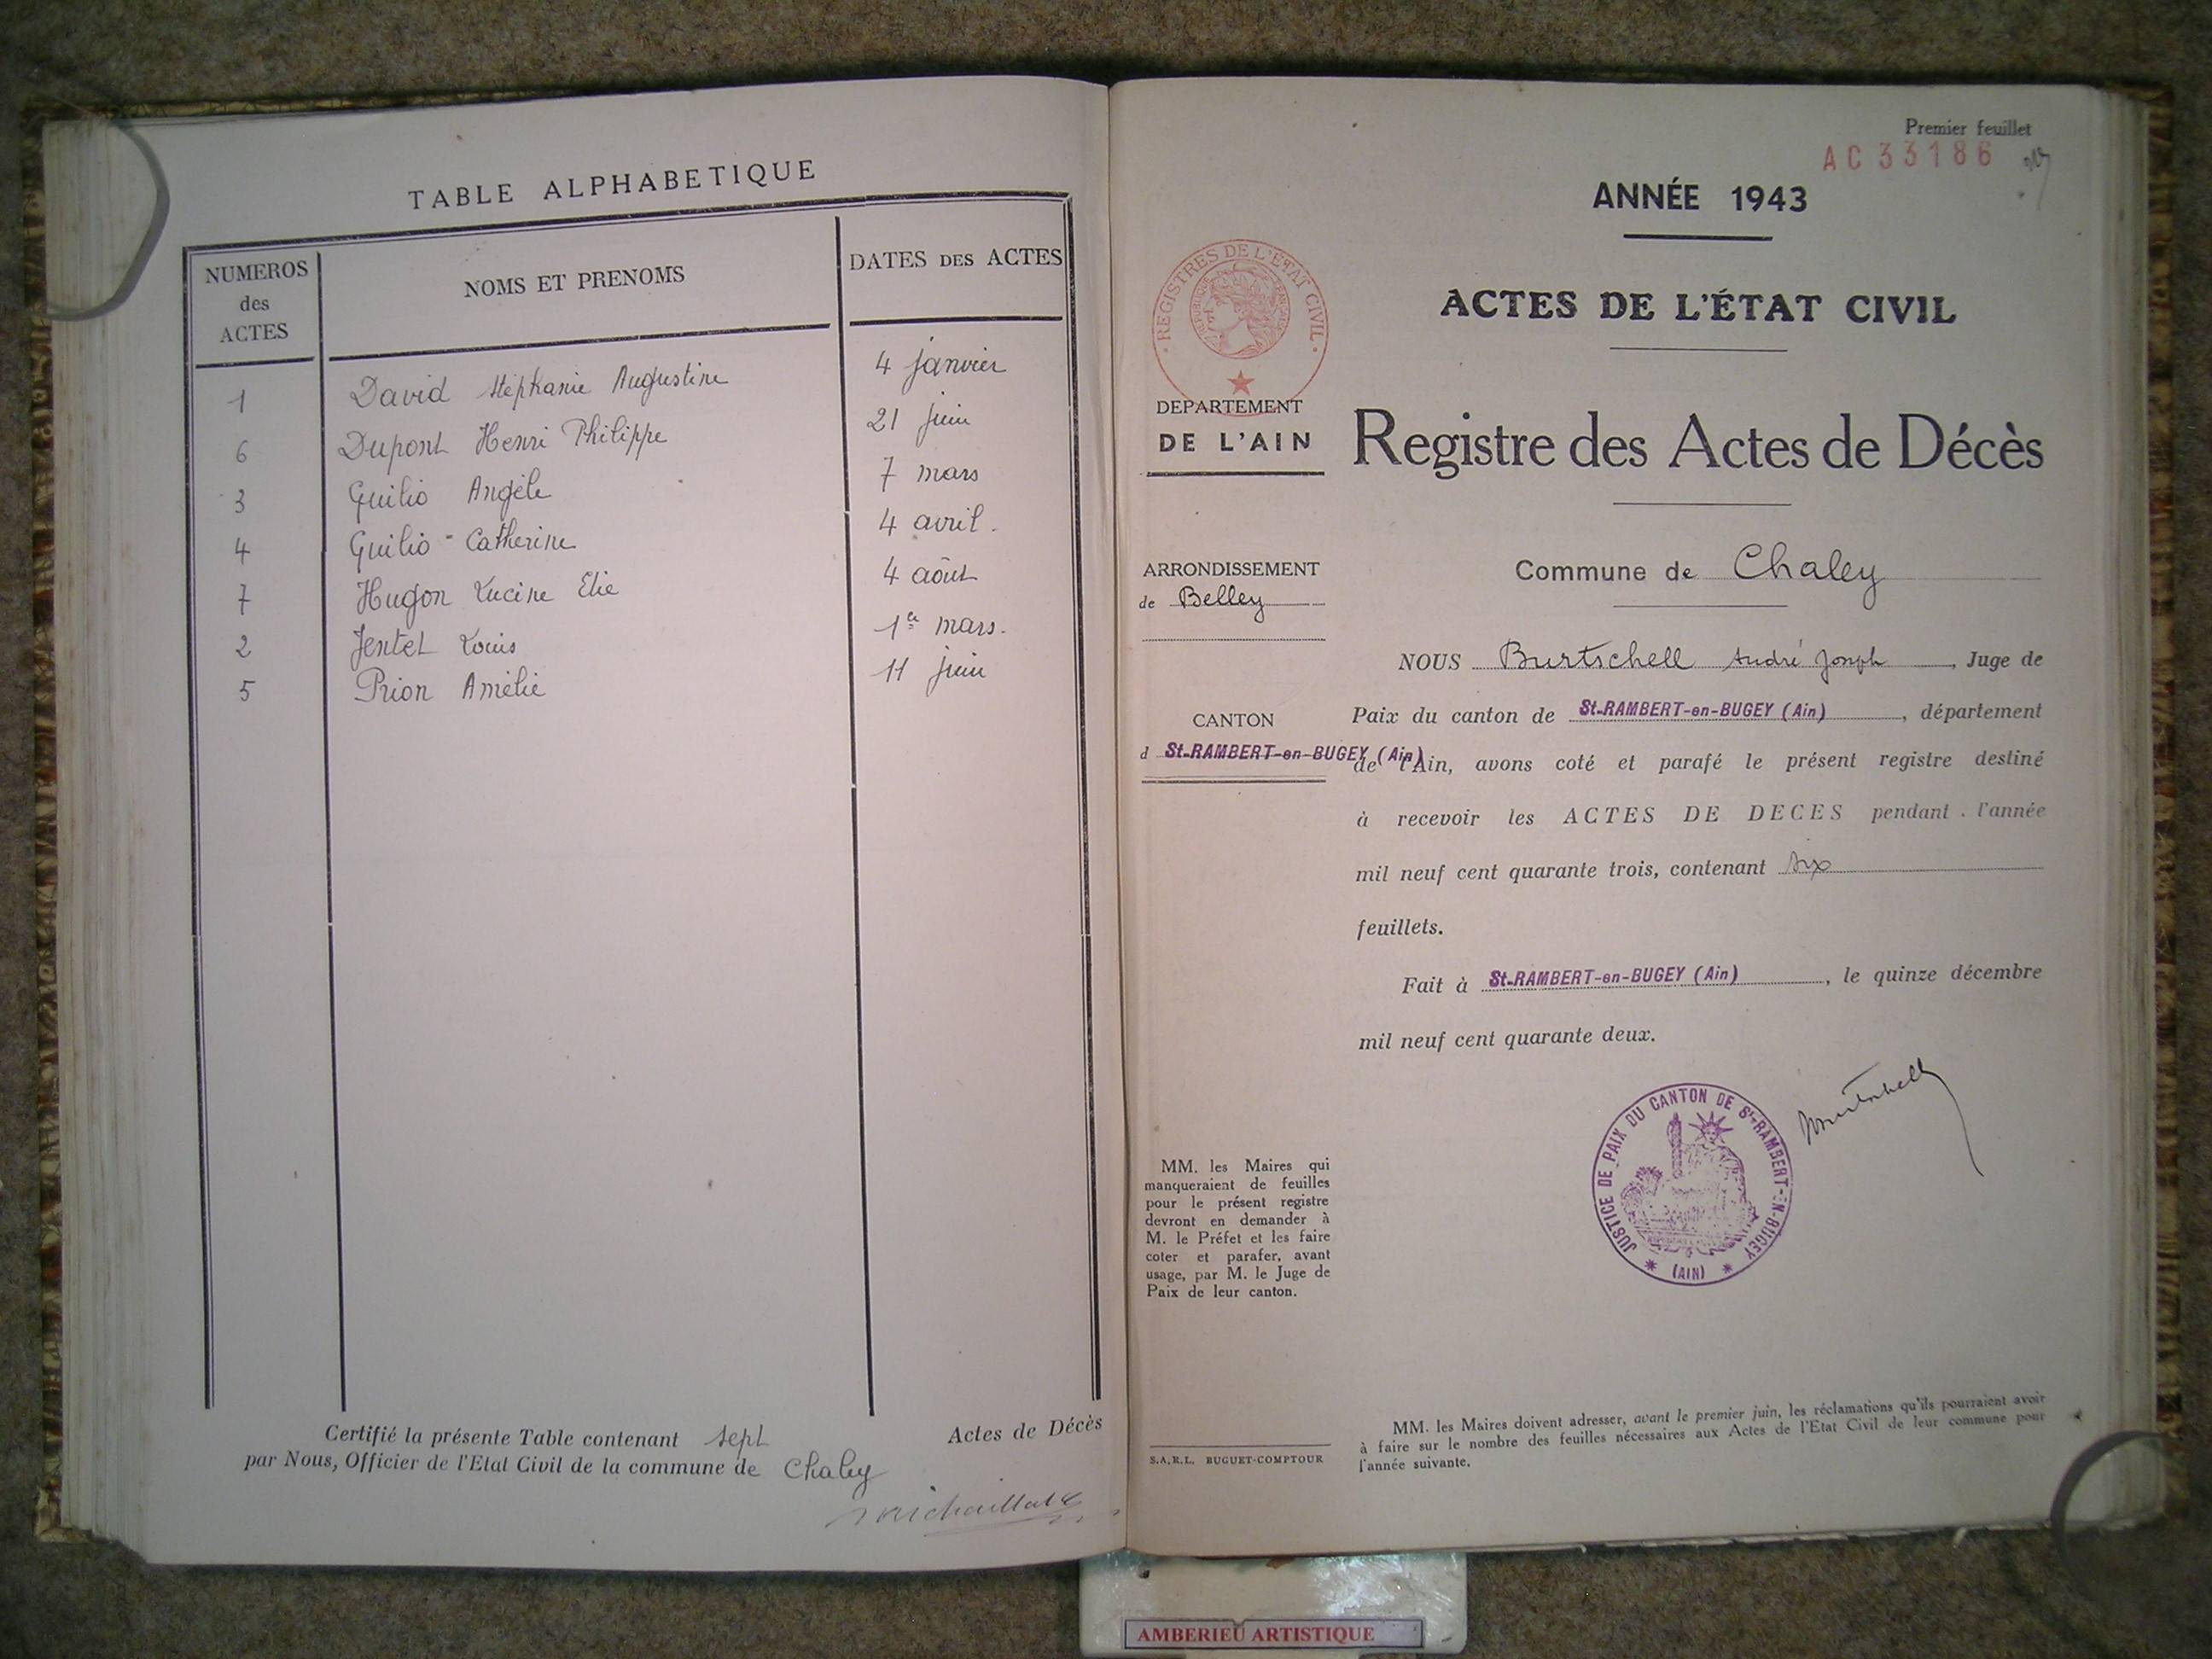 TABLE ALPHABETIQUE
NUMEROS
des
ACTES
NOMS ET PRENOMS
DATES DES ACTES
1 David Stéphanie Augustine 4 janvier
6 Dupont Henri Philippe 21 juin
3 Guilio Angèle 7 mars
4 Guilio - Catherine 4 avril.
7 Hugon Lucine Elie 4 août
2 Jentet Louis 1er mars.
5 Prion Amélie 11 juin
Certifié la présente Table contenant sept Actes de Décès
par Nous, Officier de l'Etat Civil de la commune de Chaley
Premier feuillet
AC 33186
ANNÉE 1943
ACTES DE L'ÉTAT CIVIL
REGISTRES DE L'ÉTAT CIVIL
DEPARTEMENT
DE L'AIN
Registre des Actes de Décès
Commune de Chaley
ARRONDISSEMENT
de Belley
CANTON
d St-RAMBERT-en-BUGEY (Ain)
NOUS Burtschell André Joseph, Juge de
Paix du canton de St-RAMBERT-en-BUGEY (Ain), département
de l'Ain, avons coté et parafé le présent registre destiné
à recevoir les ACTES DE DECES pendant l'année
mil neuf cent quarante trois, contenant six
feuillets.
Fait à St-RAMBERT-en-BUGEY (Ain), le quinze décembre
mil neuf cent quarante deux.
JUSTICE DE PAIX DU CANTON DE St-RAMBERT-EN-BUGEY
* (AIN) *
MM. les Maires qui
manqueraient de feuilles
pour le présent registre
devront en demander à
M. le Préfet et les faire
coter et parafer, avant
usage, par M. le Juge de
Paix de leur canton.
S.A.R.L. BUGUET-COMPTOUR
MM. les Maires doivent adresser, avant le premier juin, les réclamations qu'ils pourraient avoir
à faire sur le nombre des feuilles nécessaires aux Actes de l'Etat Civil de leur commune pour
l'année suivante.
AMBERIEU ARTISTIQUE